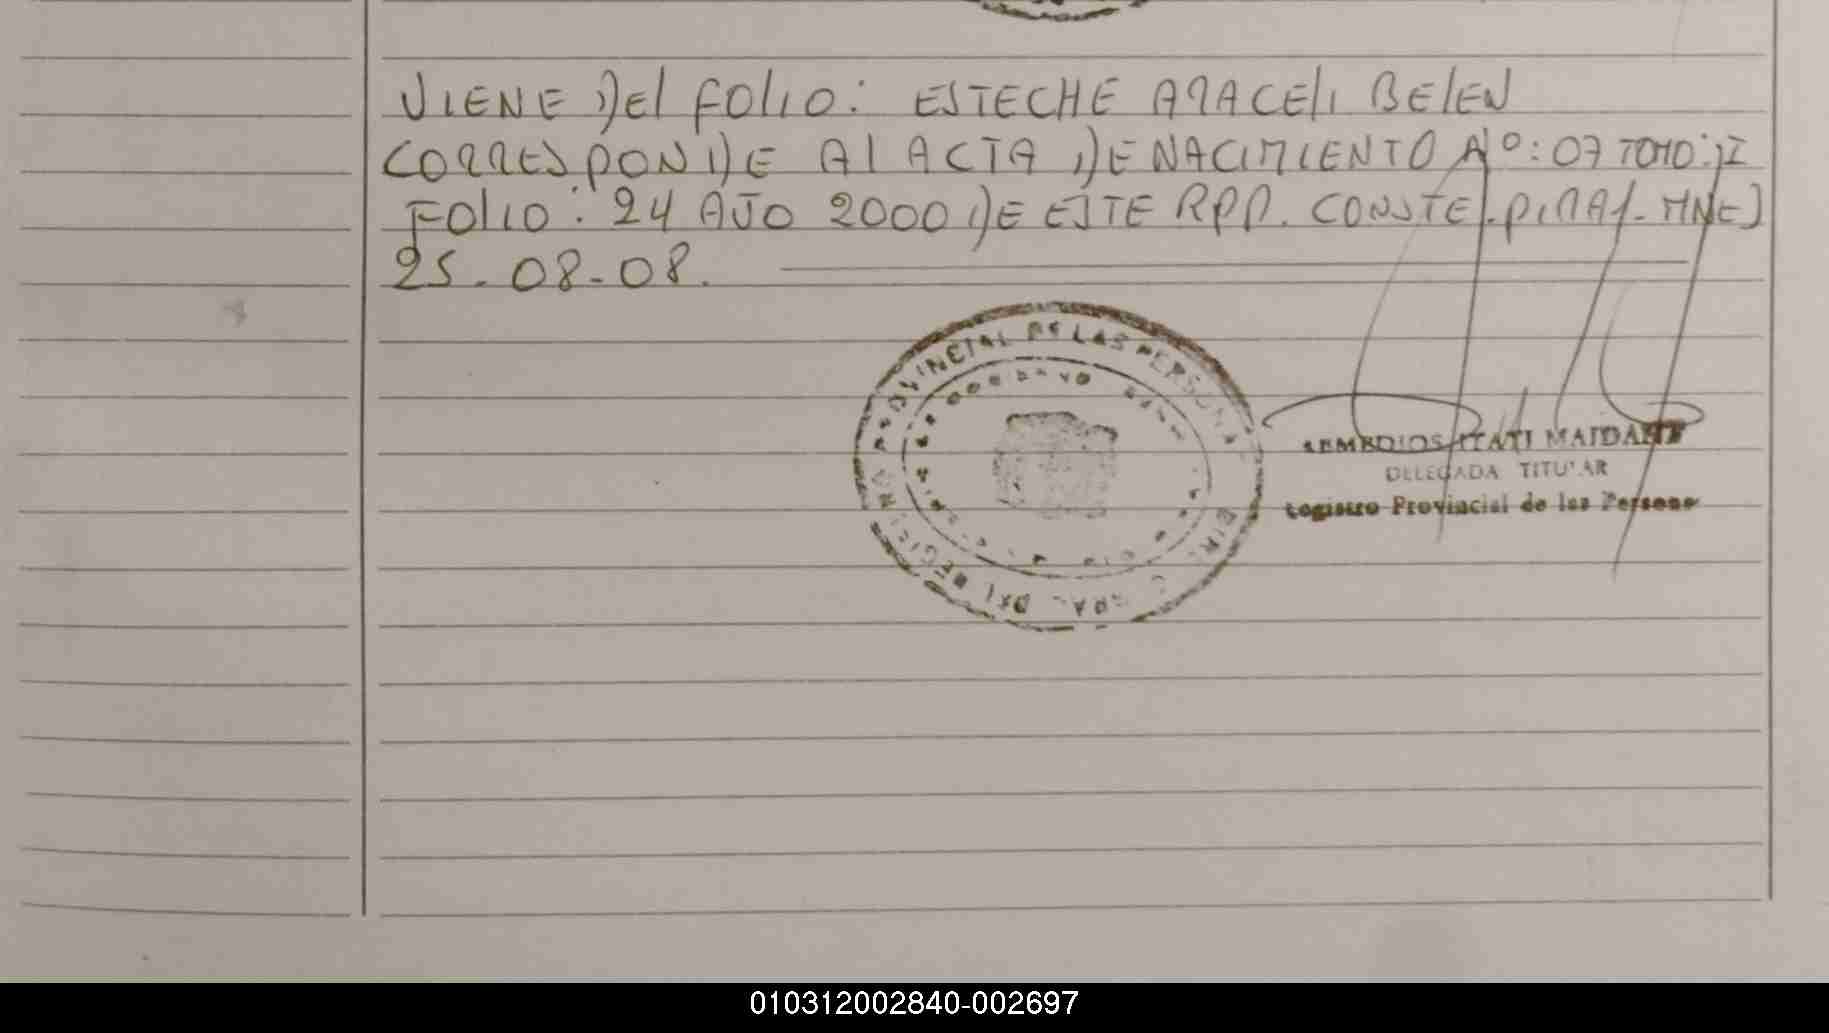 VIENE DEL FOLIO: ESTECHE ARACELI BELEN
CORRESPONDE AL ACTA DE NACIMIENTO Nº: 07 TOMO: II
FOLIO: 24 AÑO 2000 DE ESTE RPP. CONSTE.-PIRAY-MNES
25-08-08.
PROVINCIAL DE LAS PERSONA
ITATI MAIDANA
DELEGADA TITULAR
Provincial de las Persona
010312002840-002697